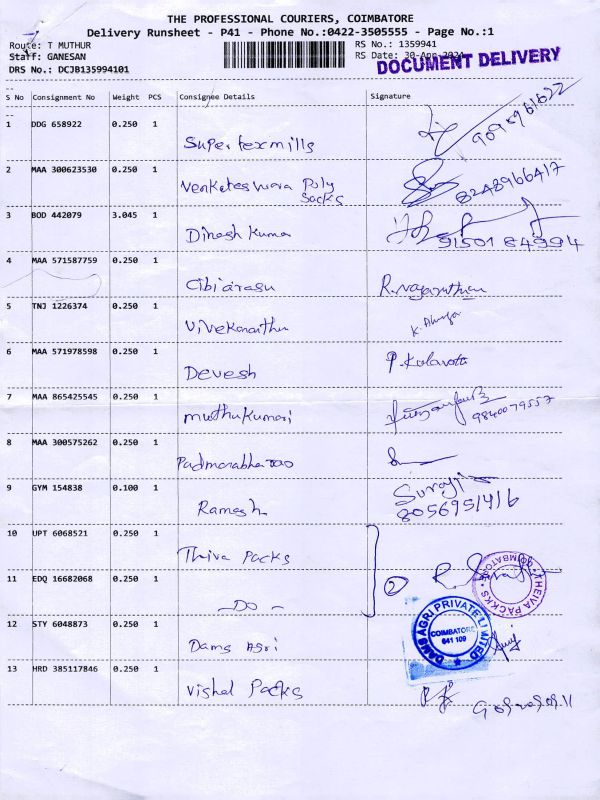 THE PROFESSIONAL COURIERS, COIMBATORE
Delivery Runsheet - P41 - Phone No.:0422-3505555 - Page No.:1
Route: T MUTHUR
RS No.: 1359941
Staff: GANESAN
RS Date: 30-Apr-2024
DRS No.: DCJB135994101
DOCUMENT DELIVERY
S No Consignment No Weight PCS Consignee Details Signature
1 DDG 658922 0.250 1 Super texmills
2 MAA 300623530 0.250 1 Venkateswara Poly
Sacks 8248966417
3 BOD 442079 3.045 1 Dinesh Kumar
9150184994
4 MAA 571587759 0.250 1 Cibiarasu
5 TNJ 1226374 0.250 1 Vivekananthan
6 MAA 571978598 0.250 1 Devesh P. Kalavathi
7 MAA 865425545 0.250 1 muthukumari
9840079557
8 MAA 300575262 0.250 1 Padmanabha rao
9 GYM 154838 0.100 1 Ramesh Suraji
8056951416
10 UPT 6068521 0.250 1 Thiva Packs
11 EDQ 16682068 0.250 1 - Do - 2
THEIVA PACKKS COIMBATORE
12 STY 6048873 0.250 1 Dams Agri
DAMS AGRI PRIVATE LIMITED
COIMBATORE
641 109
13 HRD 385117846 0.250 1 Vishal Packs